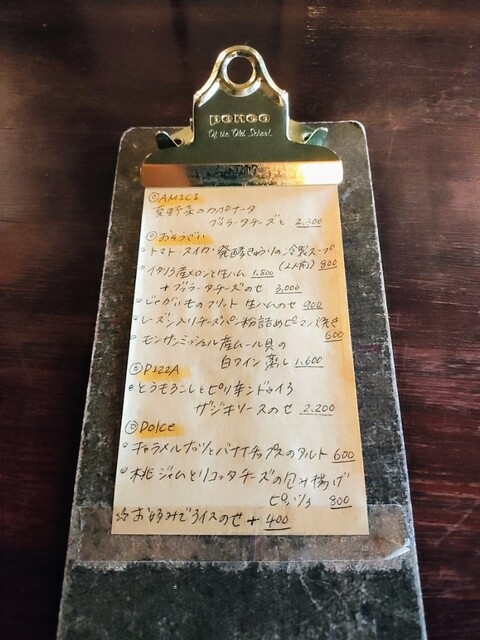 penco
Of the Old School
◎AMICI
夏野菜のカポナータ
ブッラータチーズと 2,300
◎おそうざい
・トマト・スイカ・発酵きゅうりの冷製スープ
800
・イタリア産メロンと生ハム 1,800 (2人前)
+ブッラータチーズのせ 3,000
・じゃがいものフリット 生ハムのせ 900
・レーズン入りチーズパン粉詰めピーマン焼き
600
・モンサンミッシェル産ムール貝の
白ワイン蒸し 1,600
◎PIZZA
・とうもろこしとピリ辛ンドゥイヤ
ザジキソースのせ 2,200
◎Dolce
・キャラメルナッツとバナナチップスのタルト 600
・桃ジャムとリコッタチーズの包み揚げ
ピッツァ 800
☆お好みでアイスのせ + 400